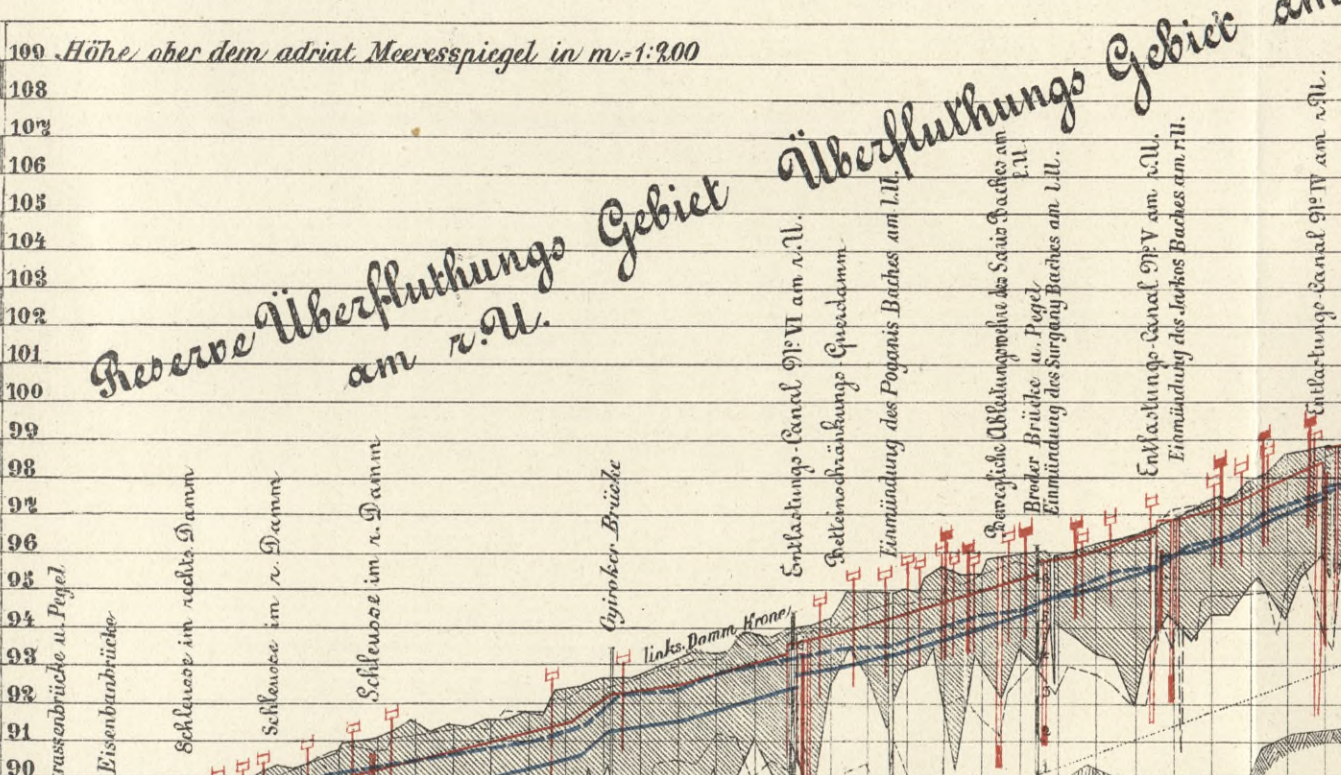 109 Höhe ober dem adriat Meeresspiegel in m.=1:200
108
107
106
105
104
103
102
101
100
99
98
97
96
95
94
93
92
91
90
Reserve Überfluthungs Gebiet
am r.U.
Überfluthungs Gebiet am
rassenbrücke u. Pegel
Eisenbanbrücke
Schleuse in rechts. Damm
Schleuse im r. Damm
Schleuse im r. Damm
Gyiroker Brücke
links. Damm Krone
Entlastungs-Canal No. VI am r.U.
Einmündung des Poganis Baches am l.U.
Bewegliche Ableitungswehre des Baches am
l.U.
Broder Brücke u. Pegel
Einmündung des Surgany Baches am l.U.
Entlastungs-Canal No. V am r.U.
Einmündung des Baches am r.U.
Entlastungs-Canal No. IV am r.U.